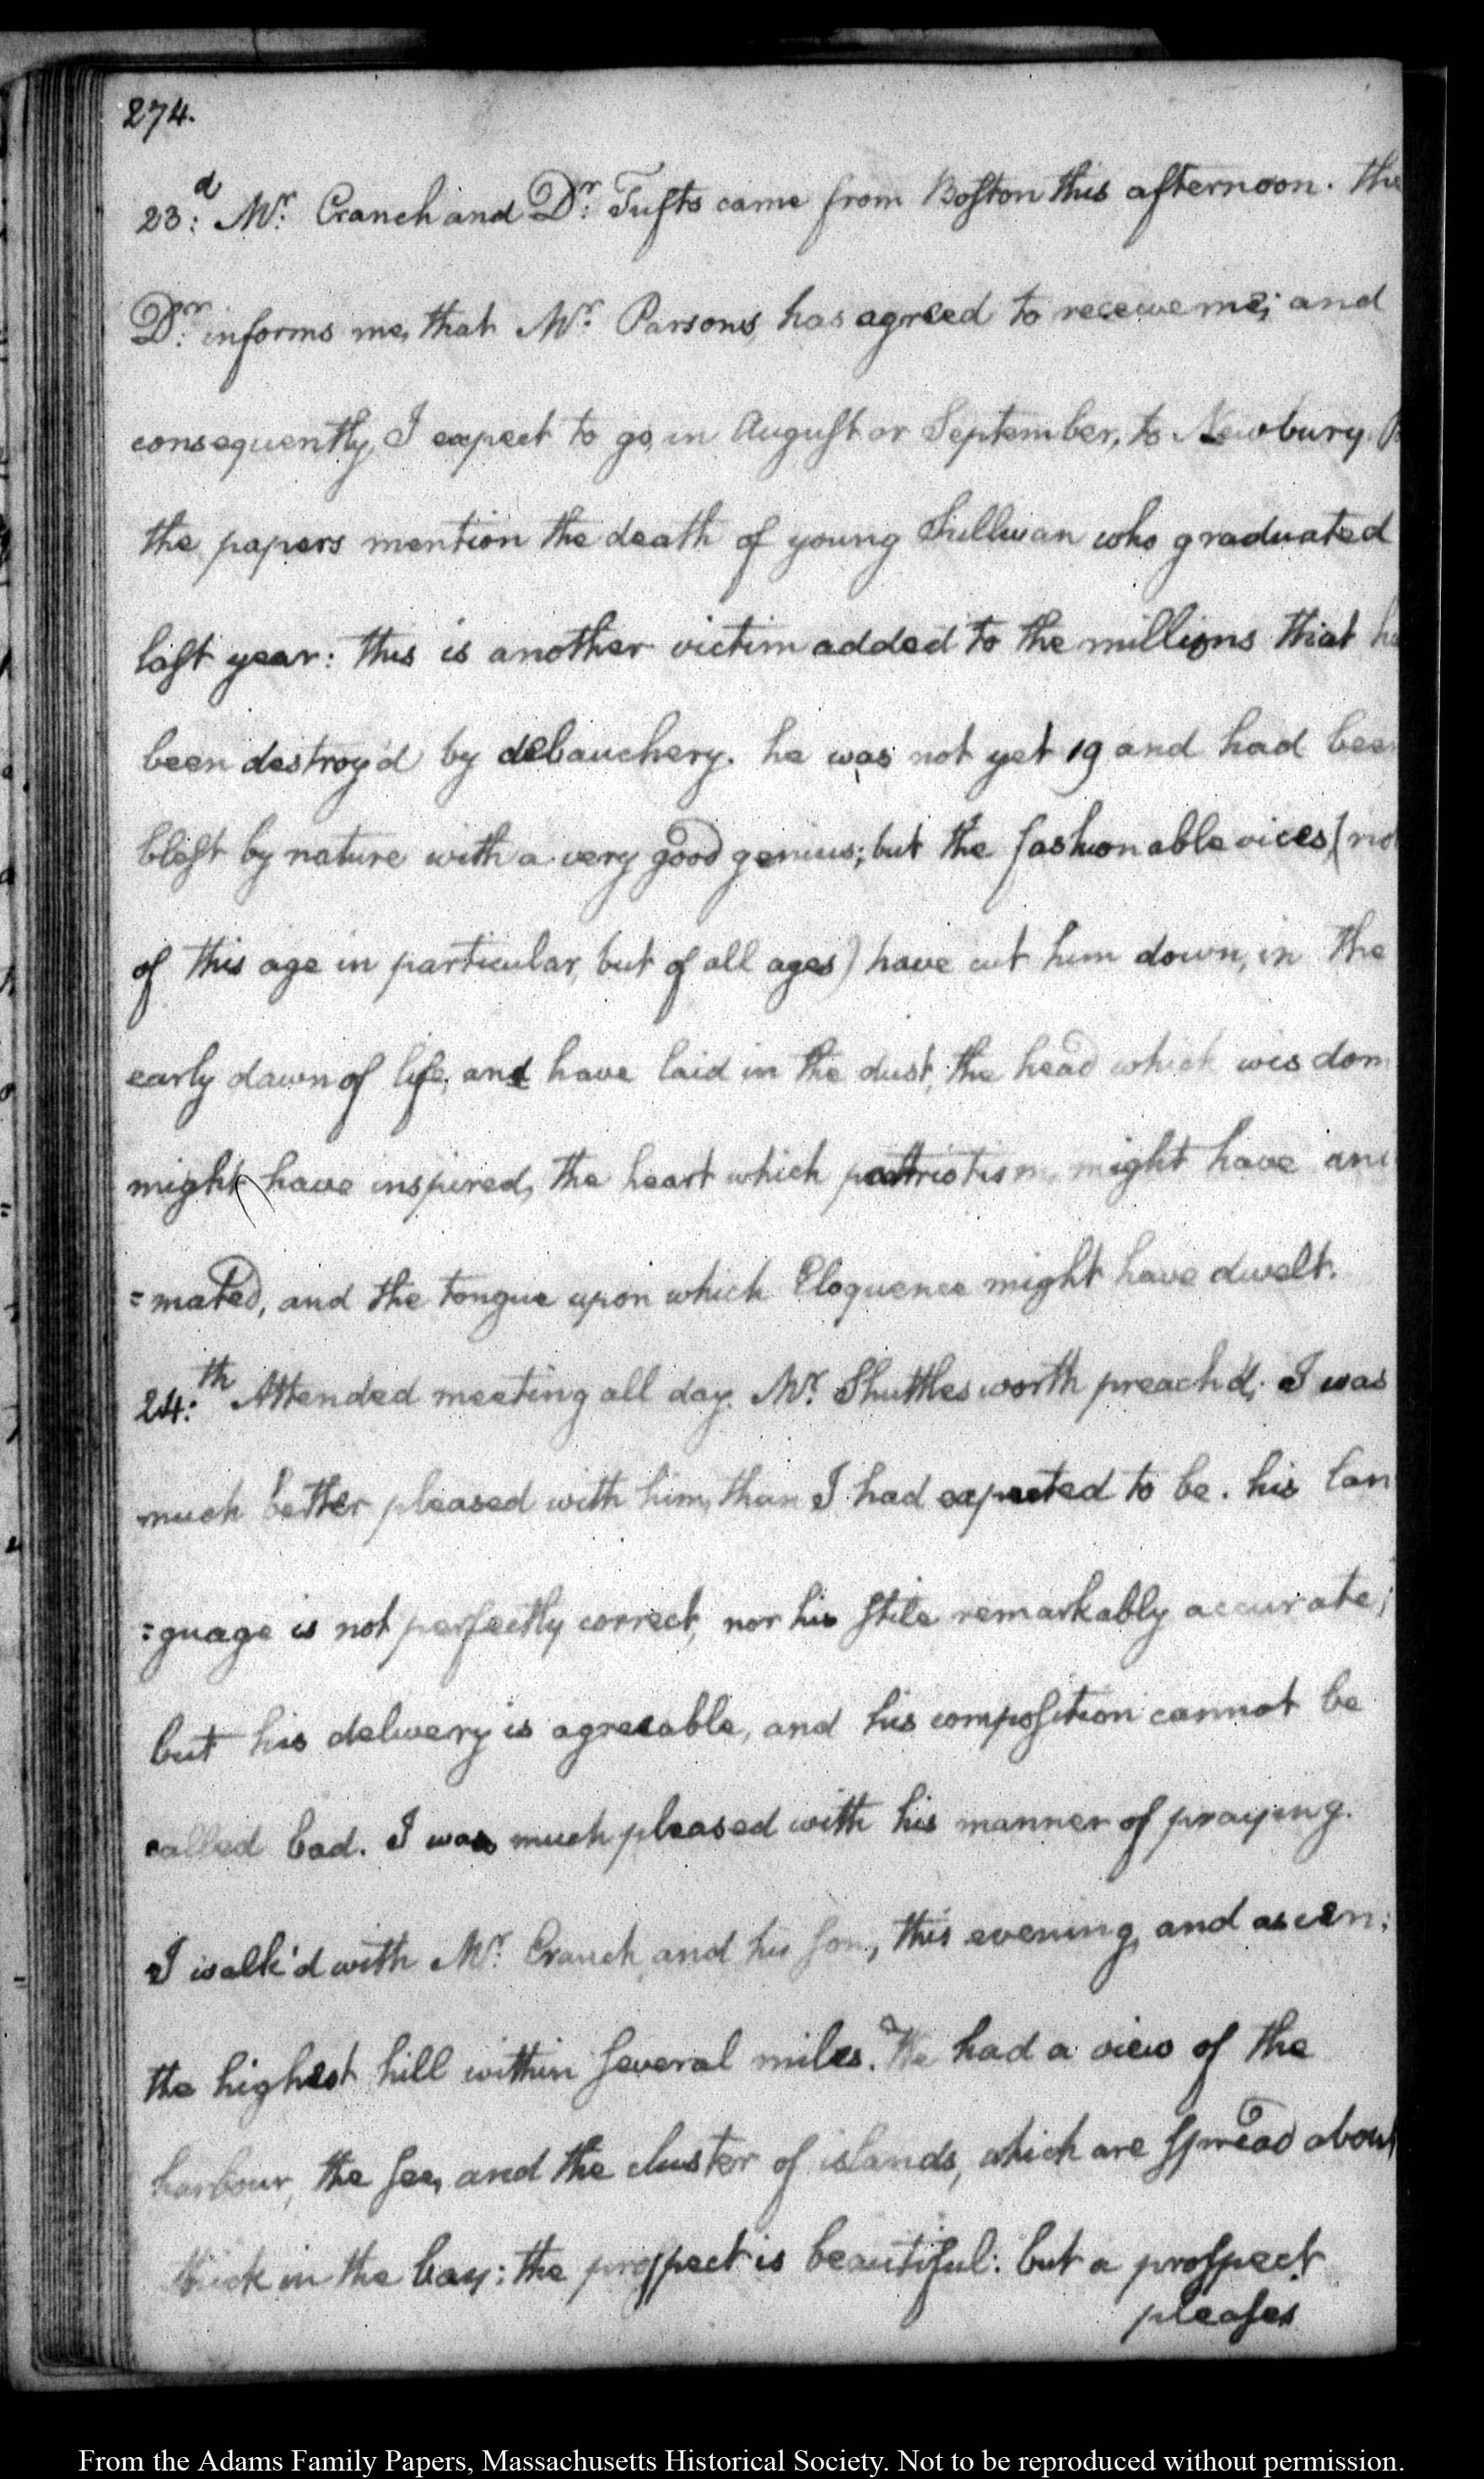 274.
23:d Mr. Cranch and Dr: Tufts came from Boston this afternoon. the
Dr: informs me, that Mr. Parsons, has agreed to receive me; and
consequently, I expect to go, in August or September, to Newbury.
the papers mention the death of young Sullivan who graduated
last year: this is another victim added to the millions that
been destroy'd by debauchery. he was not yet 19 and had bee
blest by nature with a very good genius; but the fashionable vices, (no
of this age in particular, but of all ages) have cut him down, in the
early dawn of life, and have laid in the dust, the head which wisdom
might have inspired, the heart which patriotism, might have ani
=mated, and the tongue upon which Eloquence might have dwelt.
24:th Attended meeting all day. Mr. Shuttlesworth preach'd; I was
much better pleased with him, than I had expected to be. his lan
=guage is not perfectly correct, nor his stile remarkably accurate;
but his delivery is agreeable, and his composition cannot be
called bad. I was much pleased with his manner of praying.
I walk'd with Mr. Cranch, and his son, this evening, and ascen:
the highest hill within several miles. We had a view of the
harbour, the sea, and the cluster of islands, which are spread about
thick in the bay: the prospect is beautiful: but a prospect
pleases
From the Adams Family Papers, Massachusetts Historical Society. Not to be reproduced without permission.